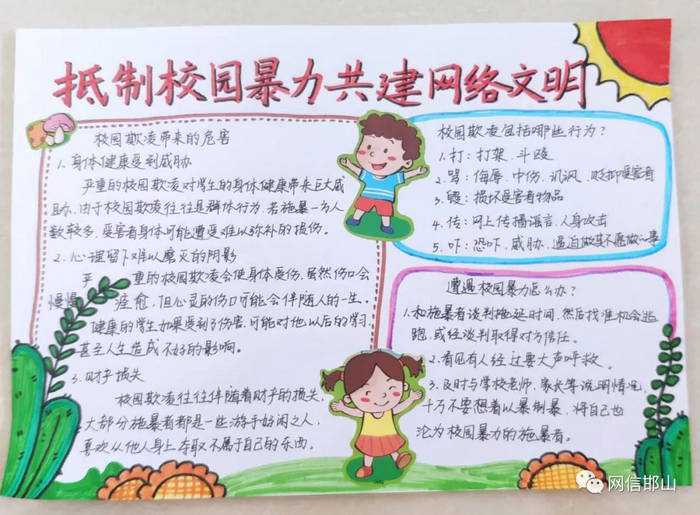 抵制校园暴力共建网络文明
校园欺凌带来的危害
1.身体健康受到威胁
严重的校园欺凌对学生的身体健康带来巨大威
胁,由于校园欺凌往往是群体行为,若施暴一方人
数较多,受害者身体可能遭受难以弥补的损伤。
2.心理留下难以磨灭的阴影
严重的校园欺凌会使身体受伤,虽然伤口会
慢慢 愈,但心灵的伤口可能会伴随人的一生。
健康的学生如果受到了伤害,可能对他以后的学习
甚至人生造成不好的影响。
3.财产损失
校园欺凌往往伴随着财产的损失,
大部分施暴者都是一些游手好闲之人,
喜欢从他人身上夺取不属于自己的东西。
校园欺凌包括哪些行为?
1.打:打架、斗殴
2.骂:侮辱、中伤、讥讽、贬抑受害者
3.毁:损坏受害者物品
4.传:网上传播谣言、人身攻击
5.吓:恐吓、威胁、逼迫做其不愿做的事
遭遇校园暴力怎么办?
1.和施暴者谈判拖延时间,然后找准机会逃
跑,或经谈判取得对方信任。
2.看见有人经过要大声呼救。
3.及时与学校老师、家长等说明情况,
千万不要想着以暴制暴,将自己也
沦为校园暴力的施暴者。
网信邯山